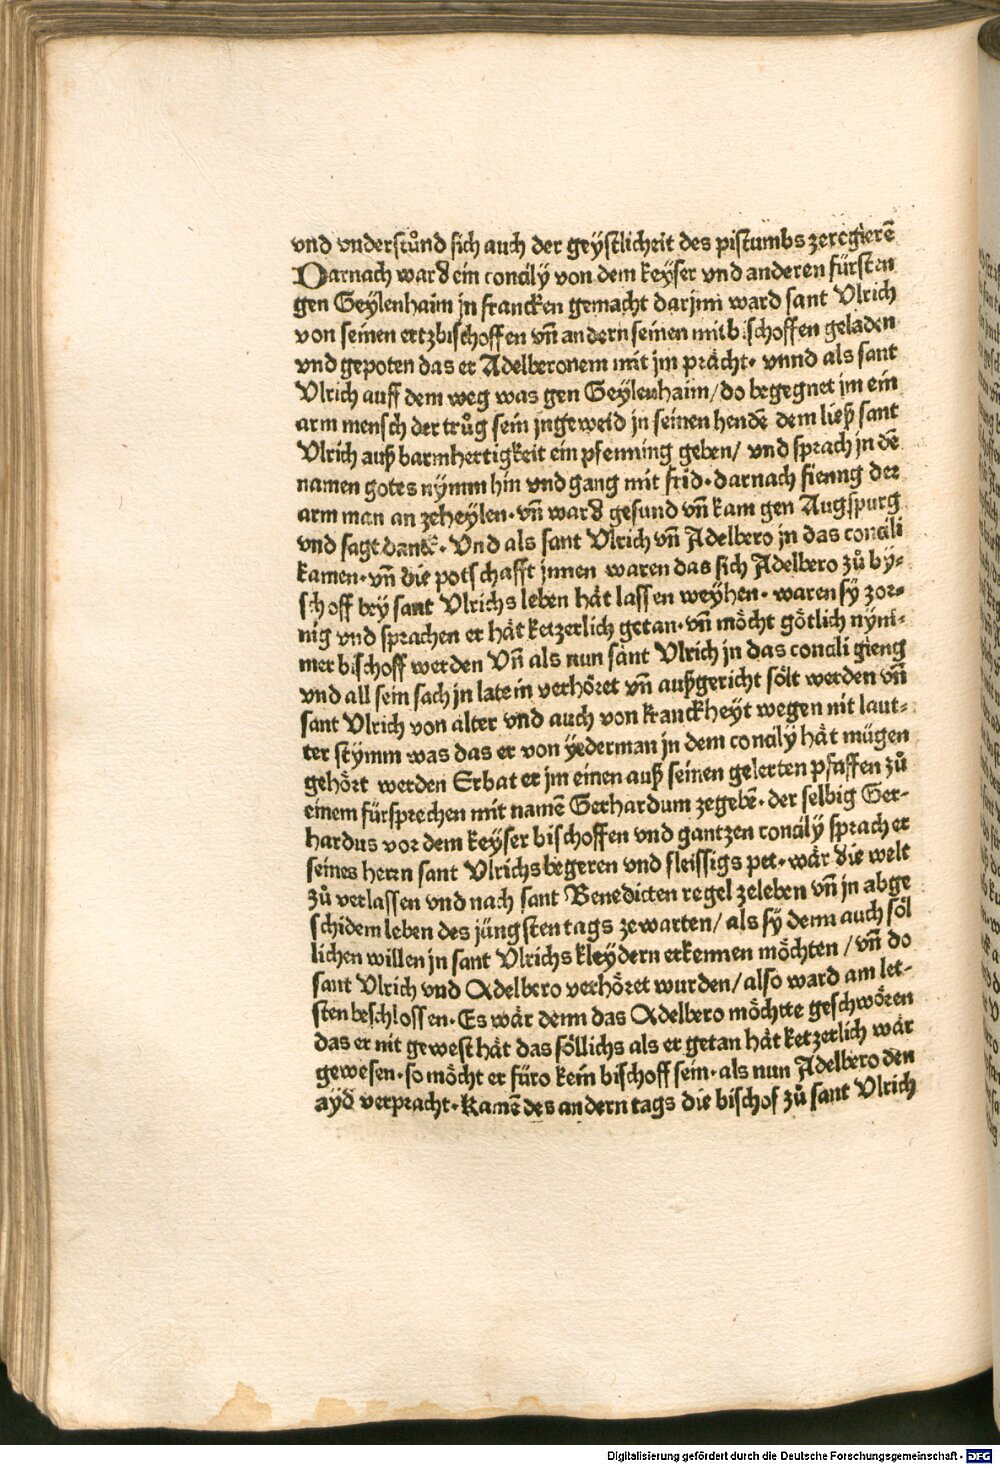 vnd vnderstůnd sich auch der geÿstlicheit des pistumbs zeregierẽ
Darnach ward ein concily von dem keÿser vnd anderen fürsten
gen Geÿlenhaim jn francken gemacht darjnn ward sant Vlrich
von seinen ertzbischoffen vñ andern seinen mitbischoffen geladen
vnd gepoten das er Adelberonem mit jm prächt· vnnd als sant
Vlrich auff dem weg was gen Geÿlenhaim/ do begegnet im ein
arm mensch der trůg sein jngeweid jn seinen hendẽ dem ließ sant
Vlrich auß barmhertigkeit ein pfenning geben/ vnd sprach jn dẽ
namen gotes nÿmm hin vnd gang mit frid· darnach fienng der
arm man an zeheÿlen· vñ ward gesund vñ kam gen Augspurg
vnd sagt danck· Vnd als sant Vlrich vñ Adelbero jn das concili
kamen· vñ die potschafft jnnen waren das sich Adelbero zů by-
schoff beÿ sant Vlrichs leben hät lassen weÿhen· waren sÿ zor-
nig vnd sprachen er hät ketzerlich getan· vñ möcht götlich nÿm-
mer bischoff werden Vñ als nun sant Vlrich jn das concili gieng
vnd all sein sach jn latein verhöret vñ außgericht sölt werden vñ
sant Vlrich von alter vnd auch von kranckheÿt wegen nit laut-
ter stÿmm was das er von ÿederman jn dem concilÿ hät mügen
gehört werden Erbat er jm einen auß seinen gelerten pfaffen zů
einem fürsprechen mit namẽ Gerhardum zegebẽ· der selbig Ger-
hardus vor dem keÿser bischoffen vnd gantzen concilÿ sprach er
seines herrn sant Vlrichs begeren vnd fleissigs pet· wär die welt
zů verlassen vnd nach sant Benedicten regel zeleben vñ jn abge
schidem leben des jüngsten tags zewarten/ als sÿ denn auch söl
lichen willen jn sant Vlrichs kleÿdern erkennen möchten/ vñ do
sant Vlrich vnd Adelbero verhöret wurden/ also ward am let-
sten beschlossen· Es wär denn das Adelbero möchte geschwören
das er nit gewest hät das söllichs als er getan hät ketzerlich wär
gewesen· so möcht er füro kein bischoff sein· als nun Adelbero den
aÿd verpracht· Kamẽ des andern tags die bischof zů sant Vlrich
Digitalisierung gefördert durch die Deutsche Forschungsgemeinschaft - DFG